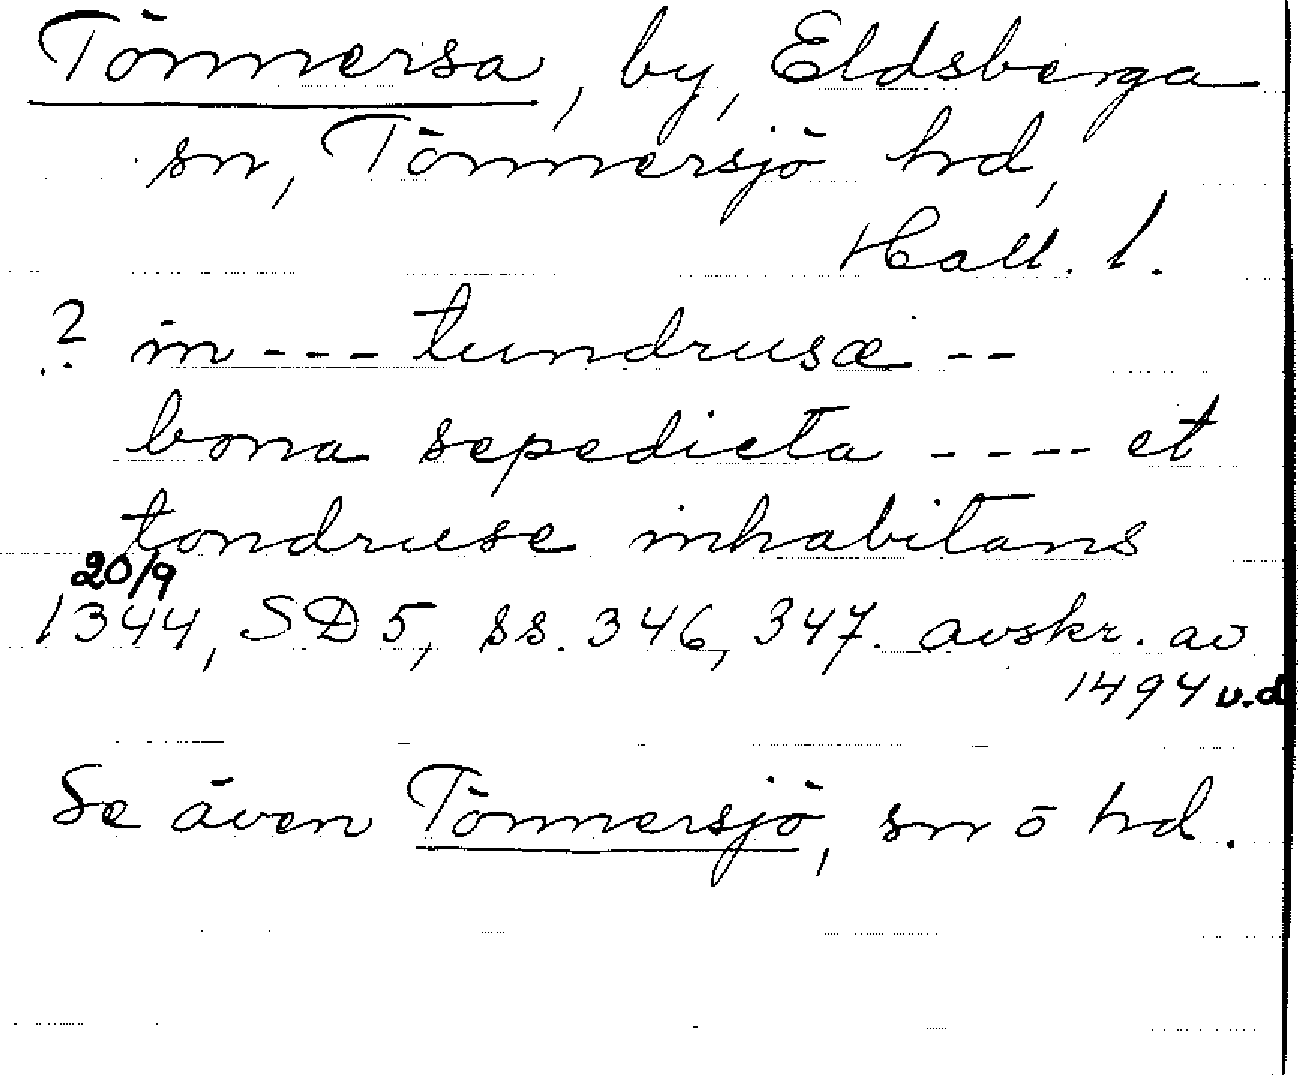 Tönnersa, by, Eldsberga
sn, Tönnersjö hd,
Hall. l.
? in --- tundrusæ --
bona sepedicta ---- et
tondruse inhabitans
20/9
1344, SD 5, ss. 346, 347. avskr. av
1494 u.d
Se även Tönnersjö, sn o hd.